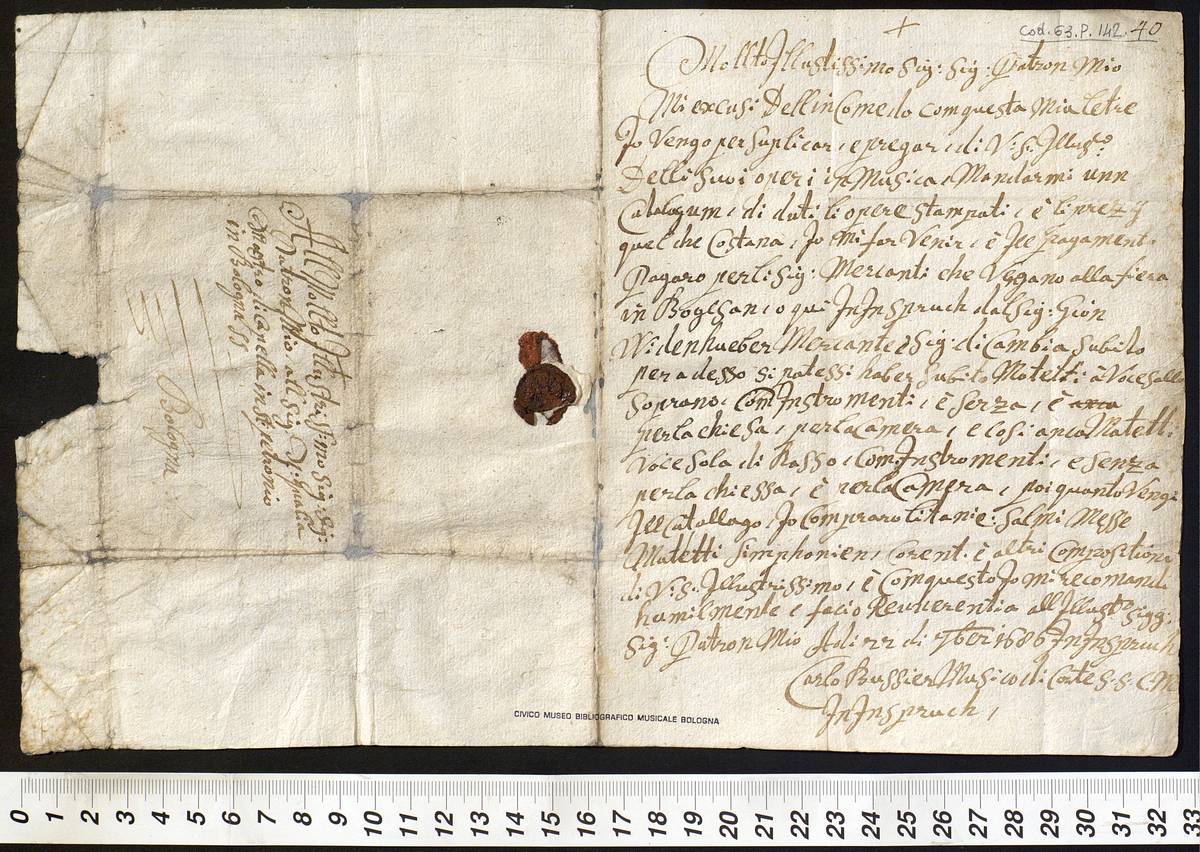 Al Molto Illustrissimo Sig: Sig:
Patron Mio al Sig:
Mastro di Capella in St petronio
in Bologna SS
Bologna
CIVICO MUSEO BIBLIOGRAFICO MUSICALE BOLOGNA
Cod. 63. P. 142. 40
+
Mollto Illustissimo Sig: Sig: Patron Mio
Mi excusi Dell inComedo comquesta Mia letre
Jo Vengo per Suplicar, e pregar, di V: S: Illusto:
Delli Suoi operi in Musica, Mandarmi unn
Catalogum, di duti li opere Stampati, è li prezy
quel che Costana, Jo Mi far Venir, è Jll pagamento
Pagaro per li Sig: Mercanti che Veggano alla fiera
in Boglsan, o qui JnJnspruch dal Sig: Gion
Widenhueber Mercante è Sig: di Cambia Subito
per adesso si potessi haber Subito Motetti à Voce Solla
Soprano, Com Jnstromenti, è Senza, è anca
per la chiesa, per la Camera, e cosi anca Matetti
Voce Sola di Basso, Com Jnstromenti, e Senza
per la chiessa, è per la Camera, poi quanto Vengi
Jll Catallago, Jo Compraro litanie: Salmi Messe
Matetti Simphonien, Corent: è altri Compositione
di V: S: Illustrissimo, è Comquesto Jo mi recomando
humilmente e facio Reuuerentia all Illusto Sigg:
Sig: Patron Mio Adi 22 di 7ber 1686 JnJnspruch
Carlo Bussier Musico di Corte S. S. C. M
JnJnspruch,
0 1 2 3 4 5 6 7 8 9 10 11 12 13 14 15 16 17 18 19 20 21 22 23 24 25 26 27 28 29 30 31 32 33